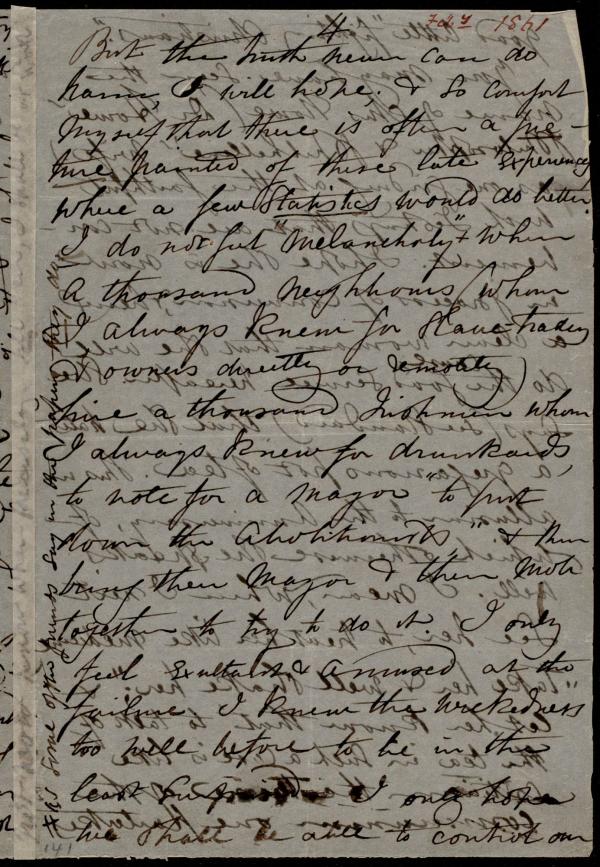 4
Feby 1861
But the truth never can do
harm, I will hope, & so comfort
myself that there is often a pic-
ture painted of these late "experiences,"
where a few Statistics would do better.
I do not feel "Melancholy" + when
a thousand neighbours (whom
I always knew for Slave-trading
& owners directly or remotely)
hire a thousand Irishmen whom
I always knew for drunkards,
to vote for a Mayor "to put
down the Abolitionists," & then
bring their Mayor & their Mob
together to try to do it. I only
feel exultant & amused at the
failure. I knew the wickedness
too well before to be in the
least surprised. I only hope
we shall be able to control our
+ As some of the friends say in the papers they do.
141